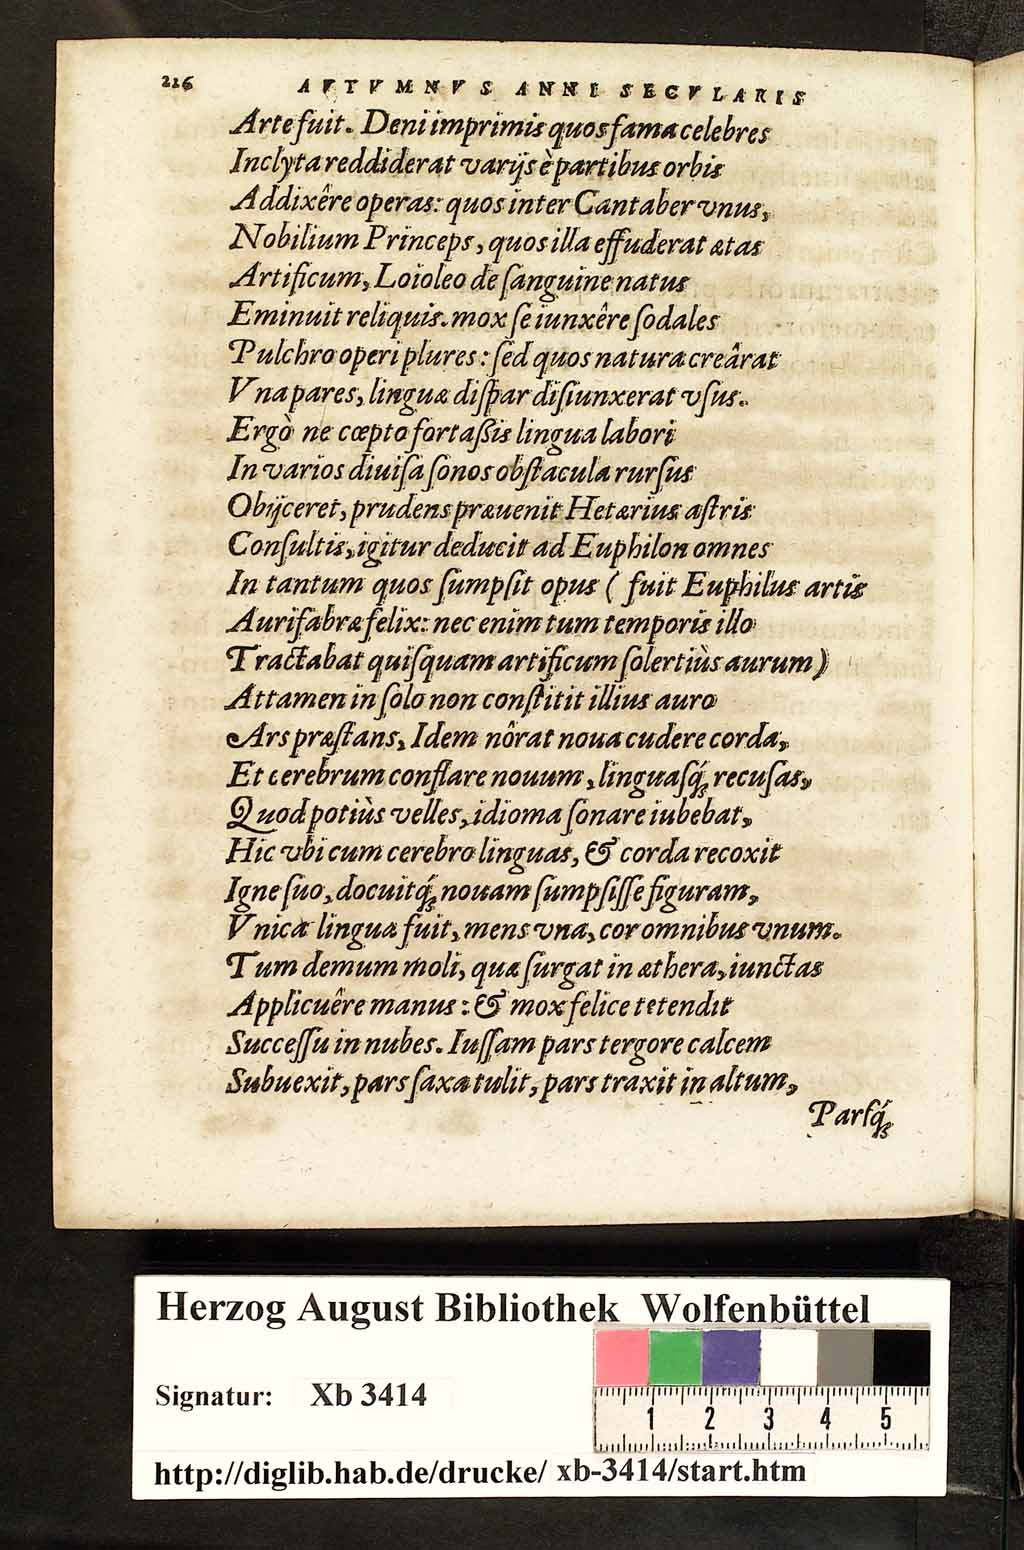 216 AVTVMNVS ANNI SECVLARIS
Arte fuit. Deni imprimis quos fama celebres
Inclyta reddiderat varijs è partibus orbis
Addixêre operas: quos inter Cantaber vnus,
Nobilium Princeps, quos illa effuderat ætas
Artificum, Loioleo de ſanguine natus
Eminuit reliquis. mox ſe iunxêre ſodales
Pulchro operi plures: ſed quos natura creârat
Vna pares, linguæ diſpar diſiunxerat vſus.
Ergò ne cœpto fortaßis lingua labori
In varios diuiſa ſonos obſtacula rurſus
Obijceret, prudens præuenit Hetærius aſtris
Conſultis, igitur deducit ad Euphilon omnes
In tantum quos ſumpſit opus ( fuit Euphilus artis
Aurifabræ felix: nec enim tum temporis illo
Tractabat quiſquam artificum ſolertiùs aurum)
Attamen in ſolo non conſtitit illius auro
Ars præſtans, Idem nôrat noua cudere corda,
Et cerebrum conflare nouum, linguaſq́; recuſas,
Quod potiùs velles, idioma ſonare iubebat,
Hic vbi cum cerebro linguas, & corda recoxit
Igne ſuo, docuitq́; nouam ſumpſiſſe figuram,
Vnica lingua fuit, mens vna, cor omnibus vnum.
Tum demum moli, quæ ſurgat in æthera, iunctas
Applicuêre manus: & mox felice tetendit
Succeſſu in nubes. Iuſſam pars tergore calcem
Subuexit, pars ſaxa tulit, pars traxit in altum,
Parſq́;
Herzog August Bibliothek Wolfenbüttel
Signatur: Xb 3414
1 2 3 4 5
http://diglib.hab.de/drucke/ xb-3414/start.htm